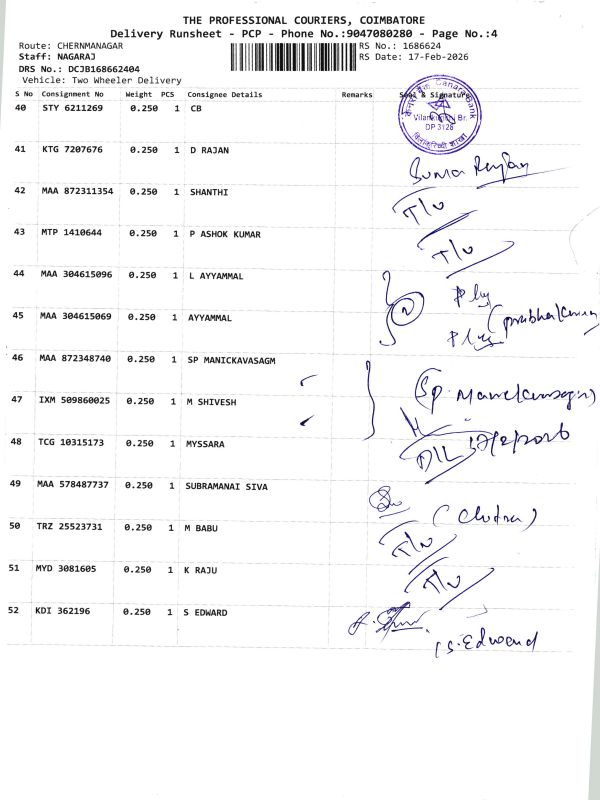 THE PROFESSIONAL COURIERS, COIMBATORE
Delivery Runsheet - PCP - Phone No.:9047080280 - Page No.:4
Route: CHERNMANAGAR RS No.: 1686624
Staff: NAGARAJ RS Date: 17-Feb-2026
DRS No.: DCJB168662404
Vehicle: Two Wheeler Delivery
S No Consignment No Weight PCS Consignee Details Remarks Seal & Signature
40 STY 6211269 0.250 1 CB
Canara Bank
Br.
DP 3128
41 KTG 7207676 0.250 1 D RAJAN
42 MAA 872311354 0.250 1 SHANTHI
T/V
43 MTP 1410644 0.250 1 P ASHOK KUMAR
T/V
44 MAA 304615096 0.250 1 L AYYAMMAL
45 MAA 304615069 0.250 1 AYYAMMAL
46 MAA 872348740 0.250 1 SP MANICKAVASAGM
47 IXM 509860025 0.250 1 M SHIVESH
48 TCG 10315173 0.250 1 MYSSARA
D/L
49 MAA 578487737 0.250 1 SUBRAMANAI SIVA
50 TRZ 25523731 0.250 1 M BABU
T/V
51 MYD 3081605 0.250 1 K RAJU
T/V
52 KDI 362196 0.250 1 S EDWARD
S. Edward